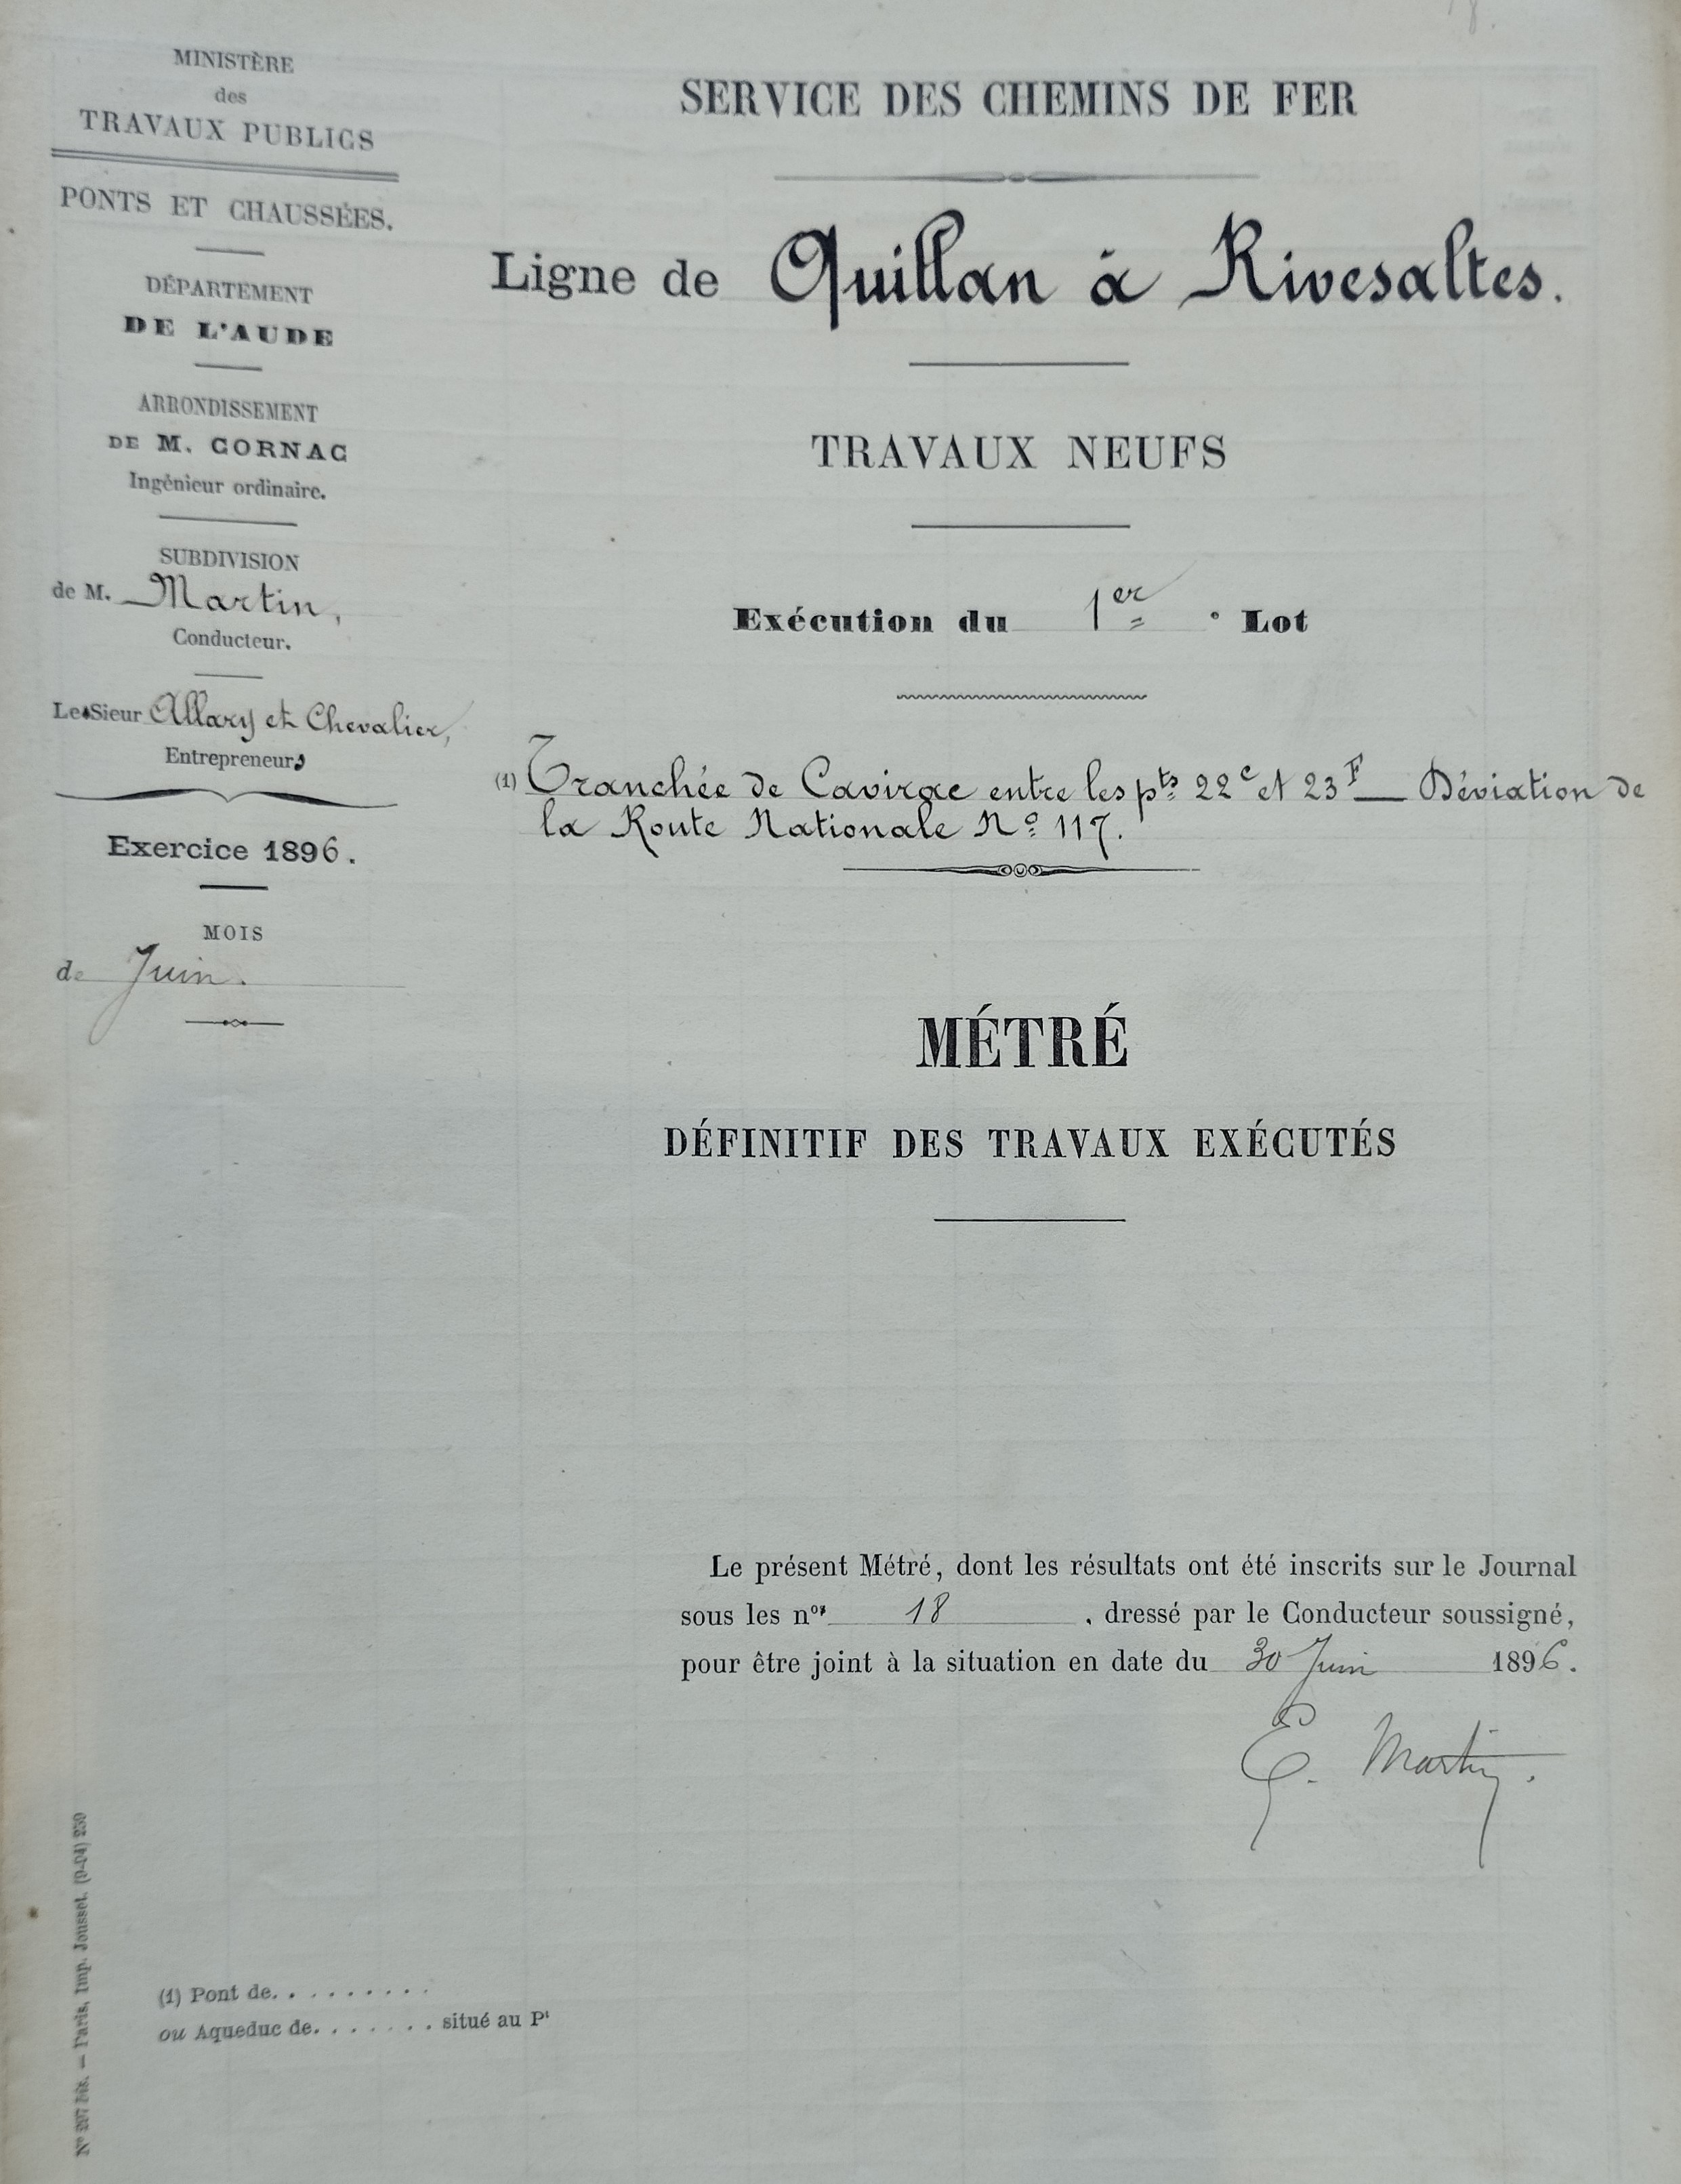 MINISTÈRE
des
TRAVAUX PUBLICS
PONTS ET CHAUSSÉES.
DÉPARTEMENT
DE L'AUDE
ARRONDISSEMENT
DE M. CORNAC
Ingénieur ordinaire.
SUBDIVISION
de M. Martin,
Conducteur.
Les Sieur Allary et Chevalier,
Entrepreneurs
Exercice 1896.
MOIS
de Juin.
SERVICE DES CHEMINS DE FER
Ligne de Quillan à Rivesaltes.
TRAVAUX NEUFS
Exécution du 1er Lot
(1) Tranchée de Cavirac entre les pts 22c et 23F — Déviation de
la Route Nationale No 117.
MÉTRÉ
DÉFINITIF DES TRAVAUX EXÉCUTÉS
Le présent Métré, dont les résultats ont été inscrits sur le Journal
sous les nos 18, dressé par le Conducteur soussigné,
pour être joint à la situation en date du 30 Juin 1896.
E. Martin.
(1) Pont de. . . . . . . . . .
ou Aqueduc de. . . . . . . . situé au Pt
No 207 bis. — Paris, Imp. Jousset. (9-94) 259